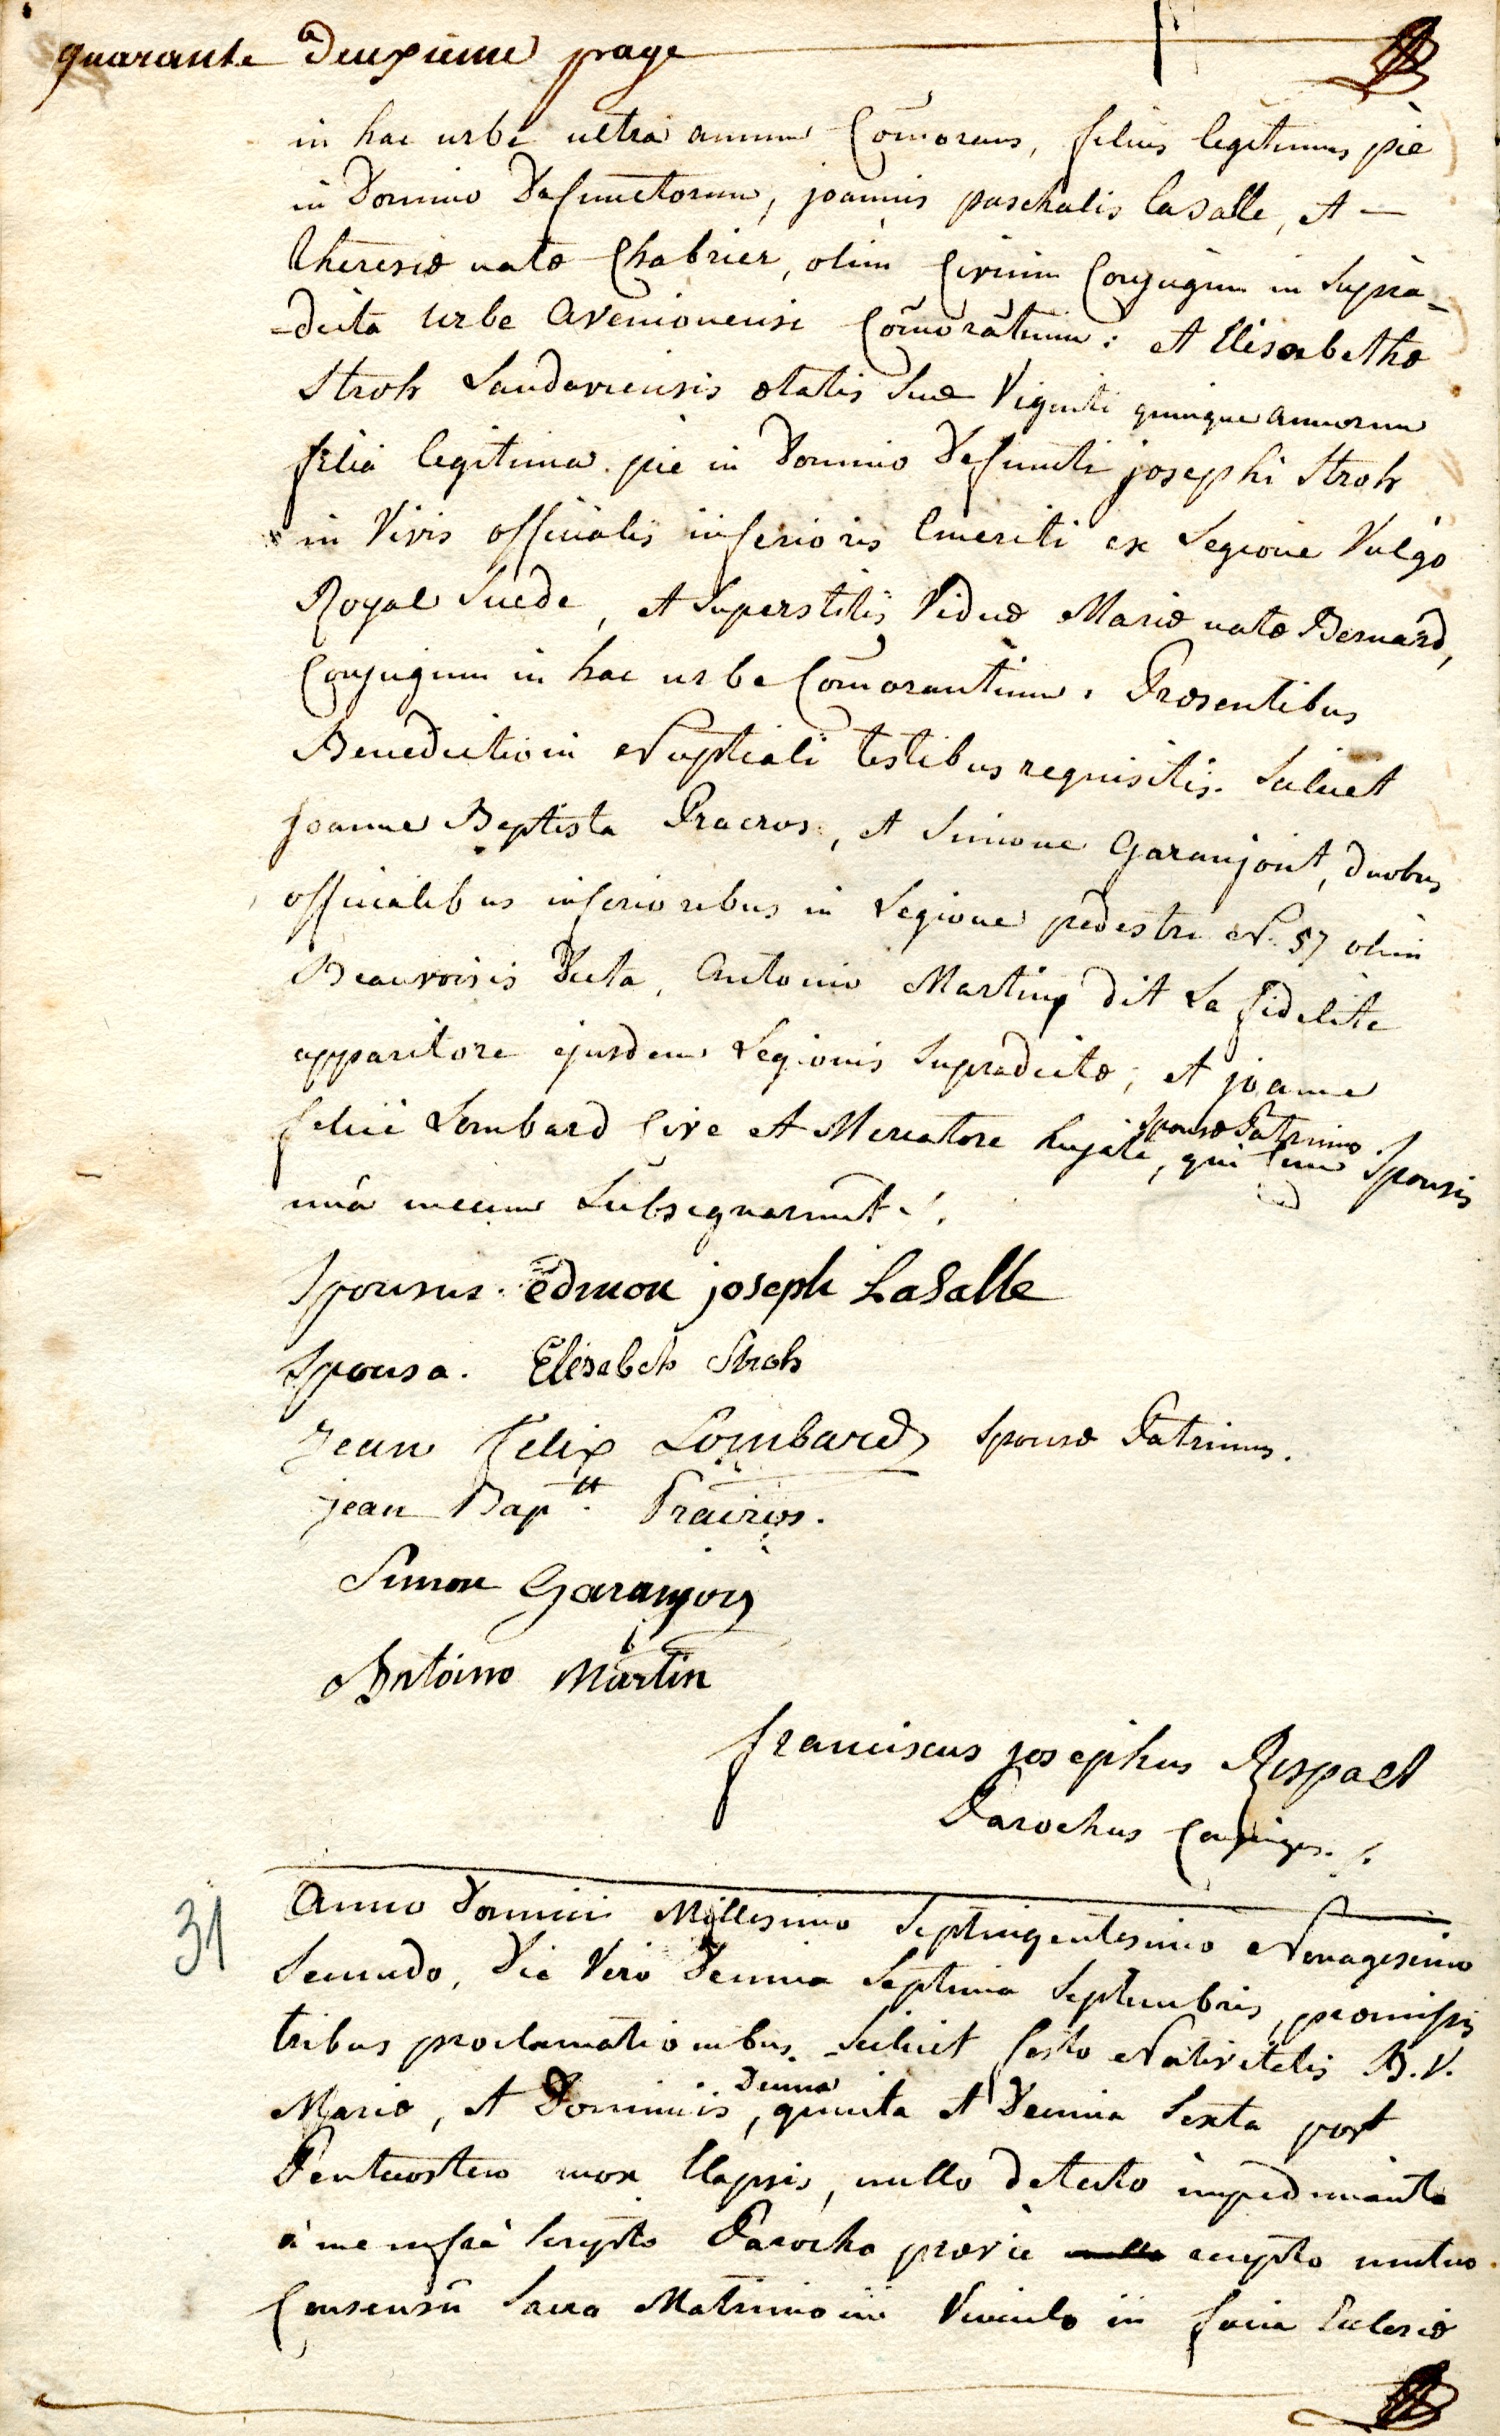 quarante deuxieme page
in hac urbe ultra annum Com̃orans, filius legitimus pie
in Domino Defunctorum, joannis paschalis laSalle, et
theresiæ natæ Chabrier, olim Civium Conjugum in Supra-
-dicta urbe avenionensi Com̃orantium: et Elisabetha
Stroh Landaviensis ætatis Suæ Viginti quinque annorum
filia legitima pie in Domino Defuncti josephi Stroh
in Vivis officialis inferioris Emeriti ex Legione Vulgo
Royal Suede, et Superstitis Viduæ Mariæ natæ Bernard,
Conjugum in hac urbe Com̃orantium. Præsentibus
Benedictioni Nuptiali testibus requisitis. Scilicet
Joanne Baptista Pracros, et Simone Garanjont, duobus
officialibus inferioribus in Legione pedestri N. 57 olim
Beauvoisis Dicta, Antonio Martin dit La fidelite
apparitore ejusdem Legionis Supradictæ; et joanne
felici Lombard Cive et Mercatore hujate, Sponsæ Patrimo qui Cum Sponsis
unà mecum Subsignarunt.
Sponsus. edmon joseph LaSalle
Sponsa. Elisabeth Stroh
Jean Felix Lombard Sponsæ Patrimus.
jean Bap^tt. Pracros.
Simon Garanjon
Antoine Martin
franciscus josephus Rispalt
Parochus Constitut.
31
Anno Domini Millesimo Septingentesimo Nonagesimo
Secundo, Die Vero Decima Septima Septembris, præmissis
tribus proclamationibus Scilicet festo Nativitatis B.V.
Mariæ, et Dominicis Decima, quinta et Decima Sexta post
Pentecosten mox Elapsis, nullo detecto impedimento
à me infrà Scripto Parocho prævie accepto mutuo
Consensu Sacro Matrimonii Vinculo in facie Ecclesiæ